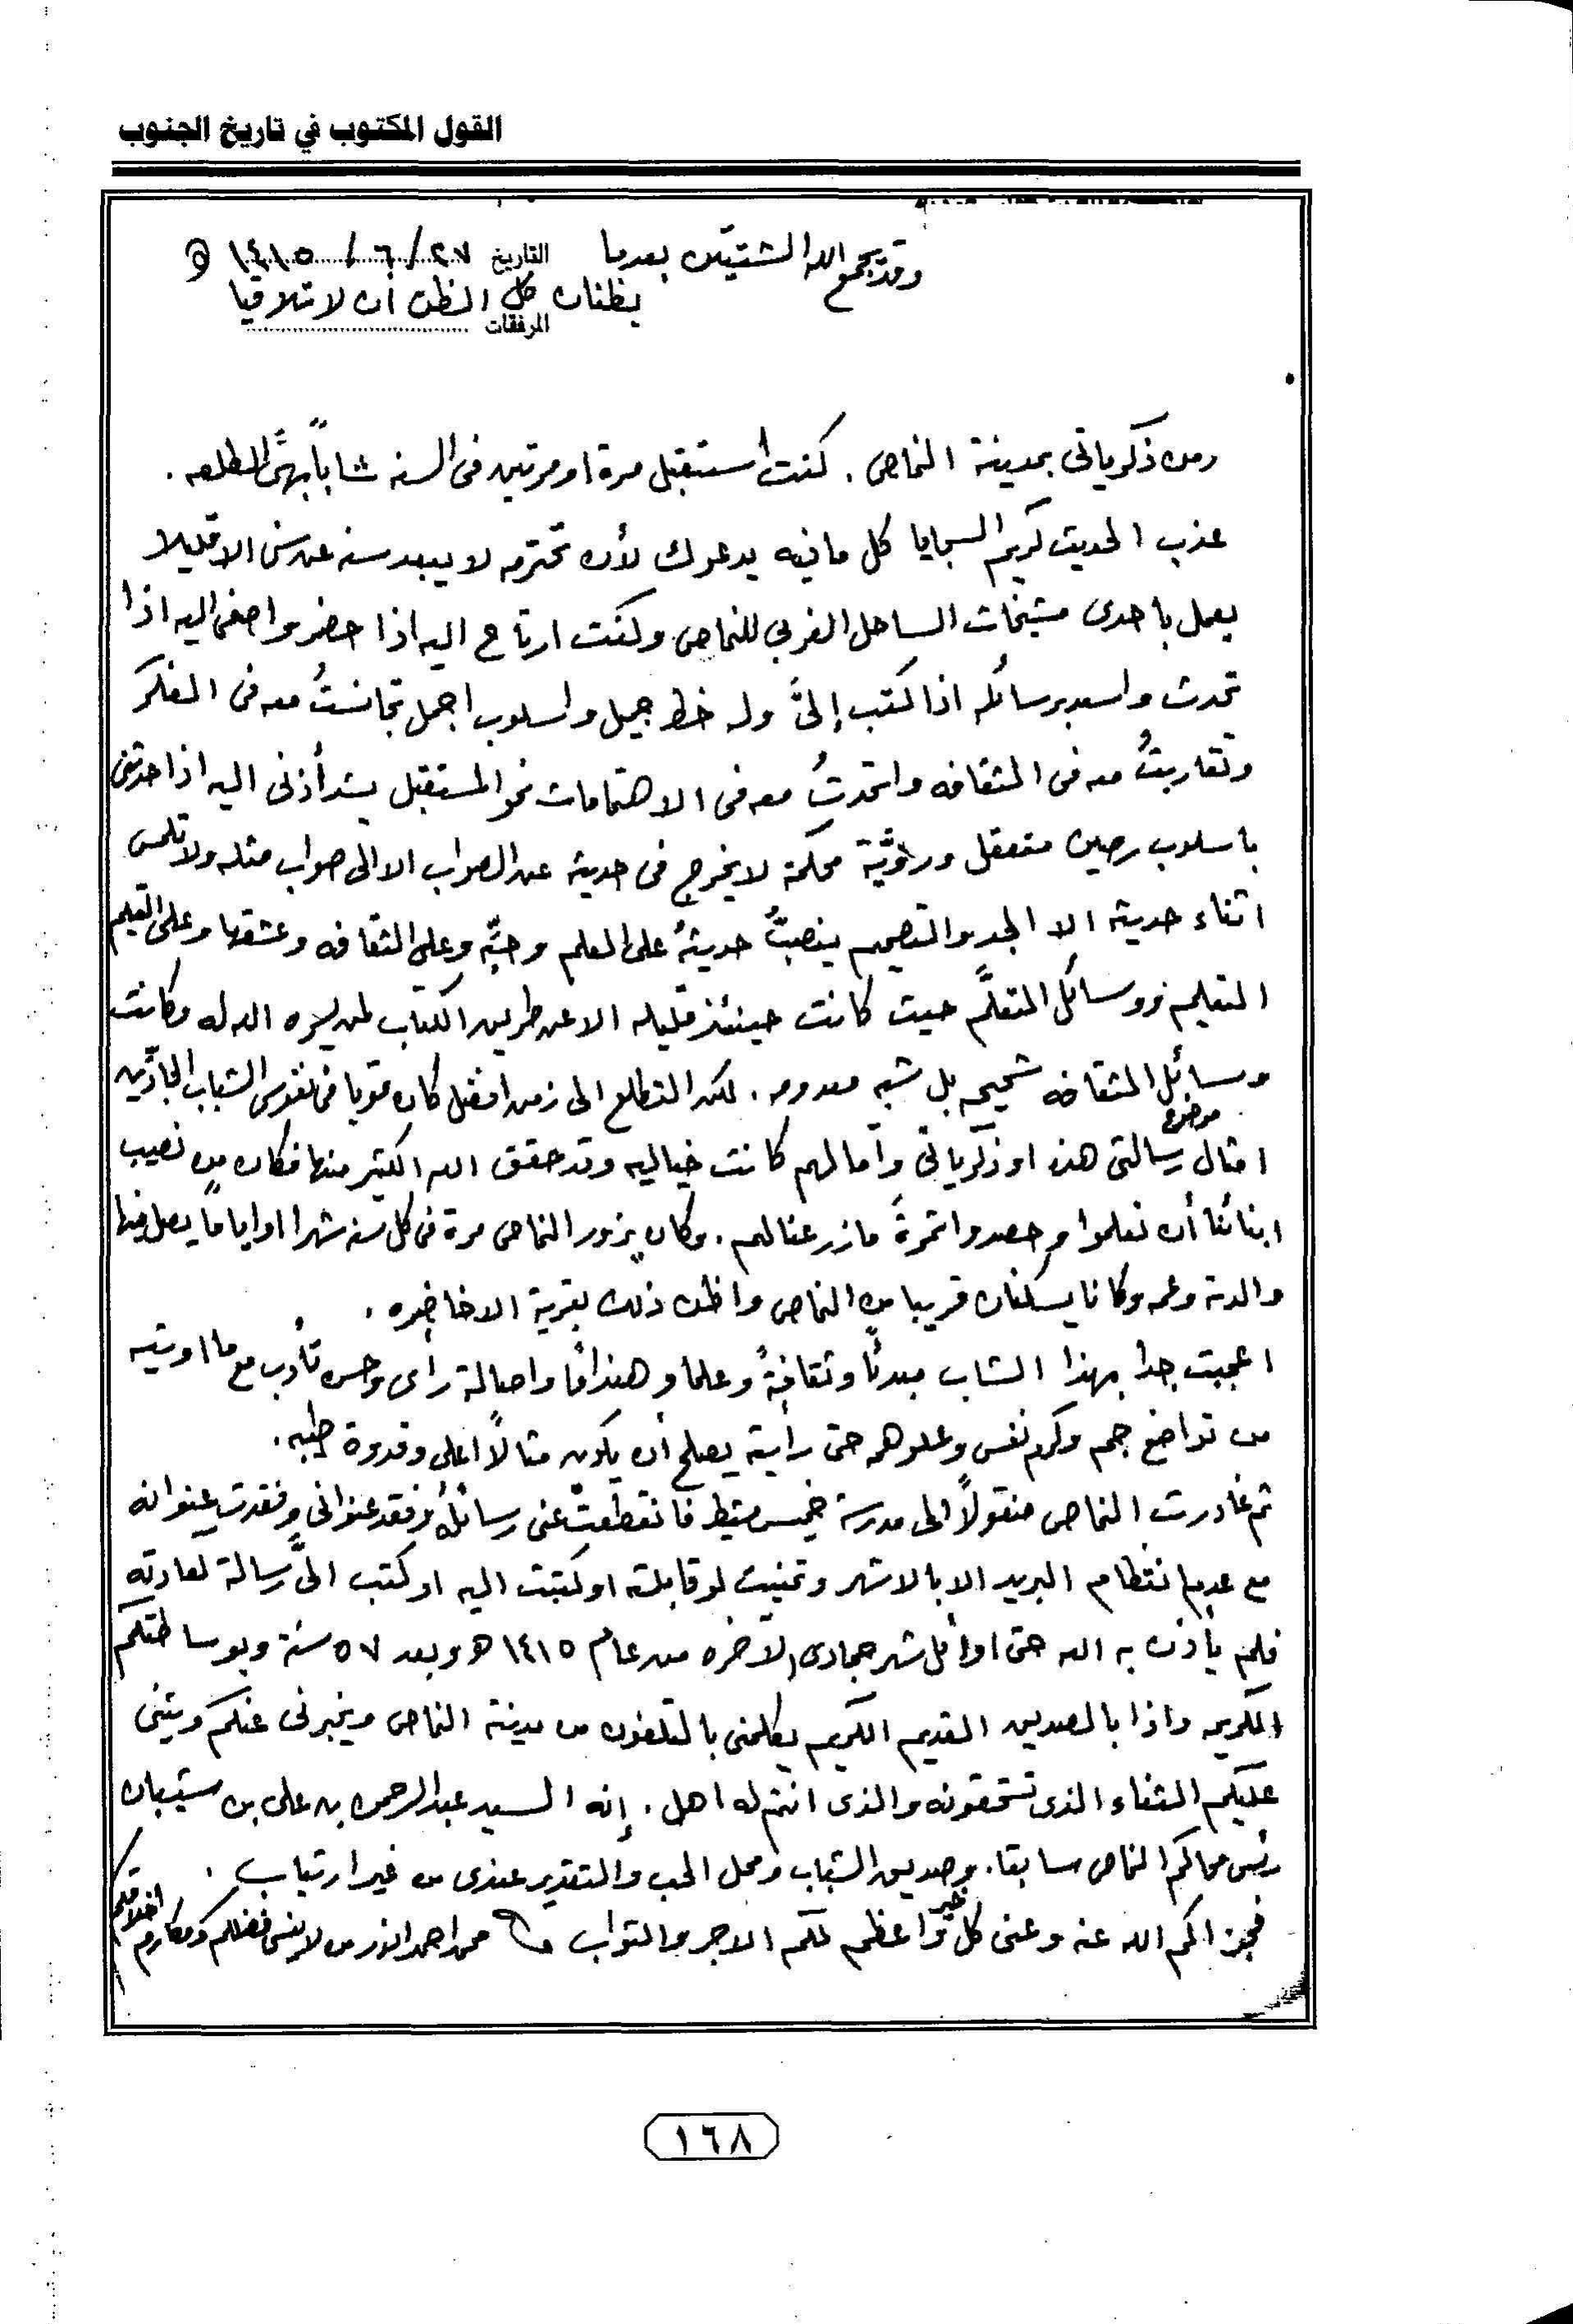 القول المكتوب في تاريخ الجنوب
وقد يجمع الله الشتيتين بعدما
التاريخ ٢٧/٦/١٤١٥ هـ
يظنان كل الظن أن لا تلاقيا
المرفقات
ومن ذكرياتى بمدينة النماص . كنت أستقبل مرة او مرتين فى السنه شاباً بهىَّ الطلعه .
عذب الحديث كريم السجايا كل ما فيه يدعوك لأن تحترمه لا يبعد سنه عن سنى الا قليلا
يعمل باحدى مشيخات الساحل الغربى للنماص وكنت ارتاح اليه اذا حضر واصغى اليه اذا
تحدث واسعد برسائله اذا كتب إلىَّ وله خط جميل واسلوب اجمل تجانستُ معه فى الفكر
وتقاربتُ معه فى الثقافه واتحدتُ معه فى الاهتمامات نحو المستقبل يشد أذنى اليه اذا حدثنى
باسلوب رصين متعقل ورويَّة محكمة لا يخرج فى حديثه عن الصواب الا الى صواب مثله ولا تلمس
اثناء حديثه الا الجد والتصميم ينصبُّ حديثهُ على العلم وحبِّه وعلى الثقافه وعشقها وعلى التعليم
التعليم ووسائل التعلُّم حيث كانت حينئذ قليله الا عن طريق الكتاب لمن يسره الله له وكانت
وسائل الثقافه شحيحه بل شبه معدومه . لكن التطلع الى زمن افضل كان قويا فى نفوس الشباب الجادِّين
امثال موضوع رسالتى هذه او ذكرياتى وآمالهم كانت خياليه وقد حقق الله الكثير منها فكان من نصيب
ابنائنا أن تعلموا وحصدوا ثمرةَ ما زرعنا لهم . وكان يزور النماص مرة فى كل سنه شهرا او اياماً يصل فيها
والدته وعمه وكانا يسكنان قريبا من النماص واظن ذلك بقرية الاخاضره .
اعجبت جدا بهذا الشاب مبدئاً وثقافةً وعلما وهنداماً واصالة رأى وحسن تأدب مع ما اوتيه
من تواضع جم وكرم نفس وعلو همه حتى رأيته يصلح أن يكون مثالاً أعلى وقدوة طيبه .
ثم غادرت النماص منقولاً الى مدرسة خميس مشيط فانقطعت عنى رسائلهُ وفقد عنوانى وفقدت عنوانه
مع عدم انتظام البريد الا بالاشهر وتمنيت لو قابلته او كتبت اليه او كتب الىَّ رسالة كعادته
فلم يأذن به الله حتى اوائل شهر جمادى الآخره من عام ١٤١٥ هـ وبعد ٥٧ سنة وبوساطتكم
الكريمه واذا بالصديق القديم الكريم يكلمنى بالتلفون من مدينة النماص ويخبرنى عنكم ويثنى
عليكم الثناء الذى تستحقونه والذى انتم له اهل . إنه السيد عبدالرحمن بن على بن شيبان
رئيس محاكم النماص سابقا . وصديق الشباب ومحل الحب والتقدير عندى من غير ارتياب .
فجزاكم الله عنه وعنى كل خير واعظم لكم الاجر والثواب محمد احمد انور من لا ينسى فضلكم ومكارم اخلاقكم
١٦٨